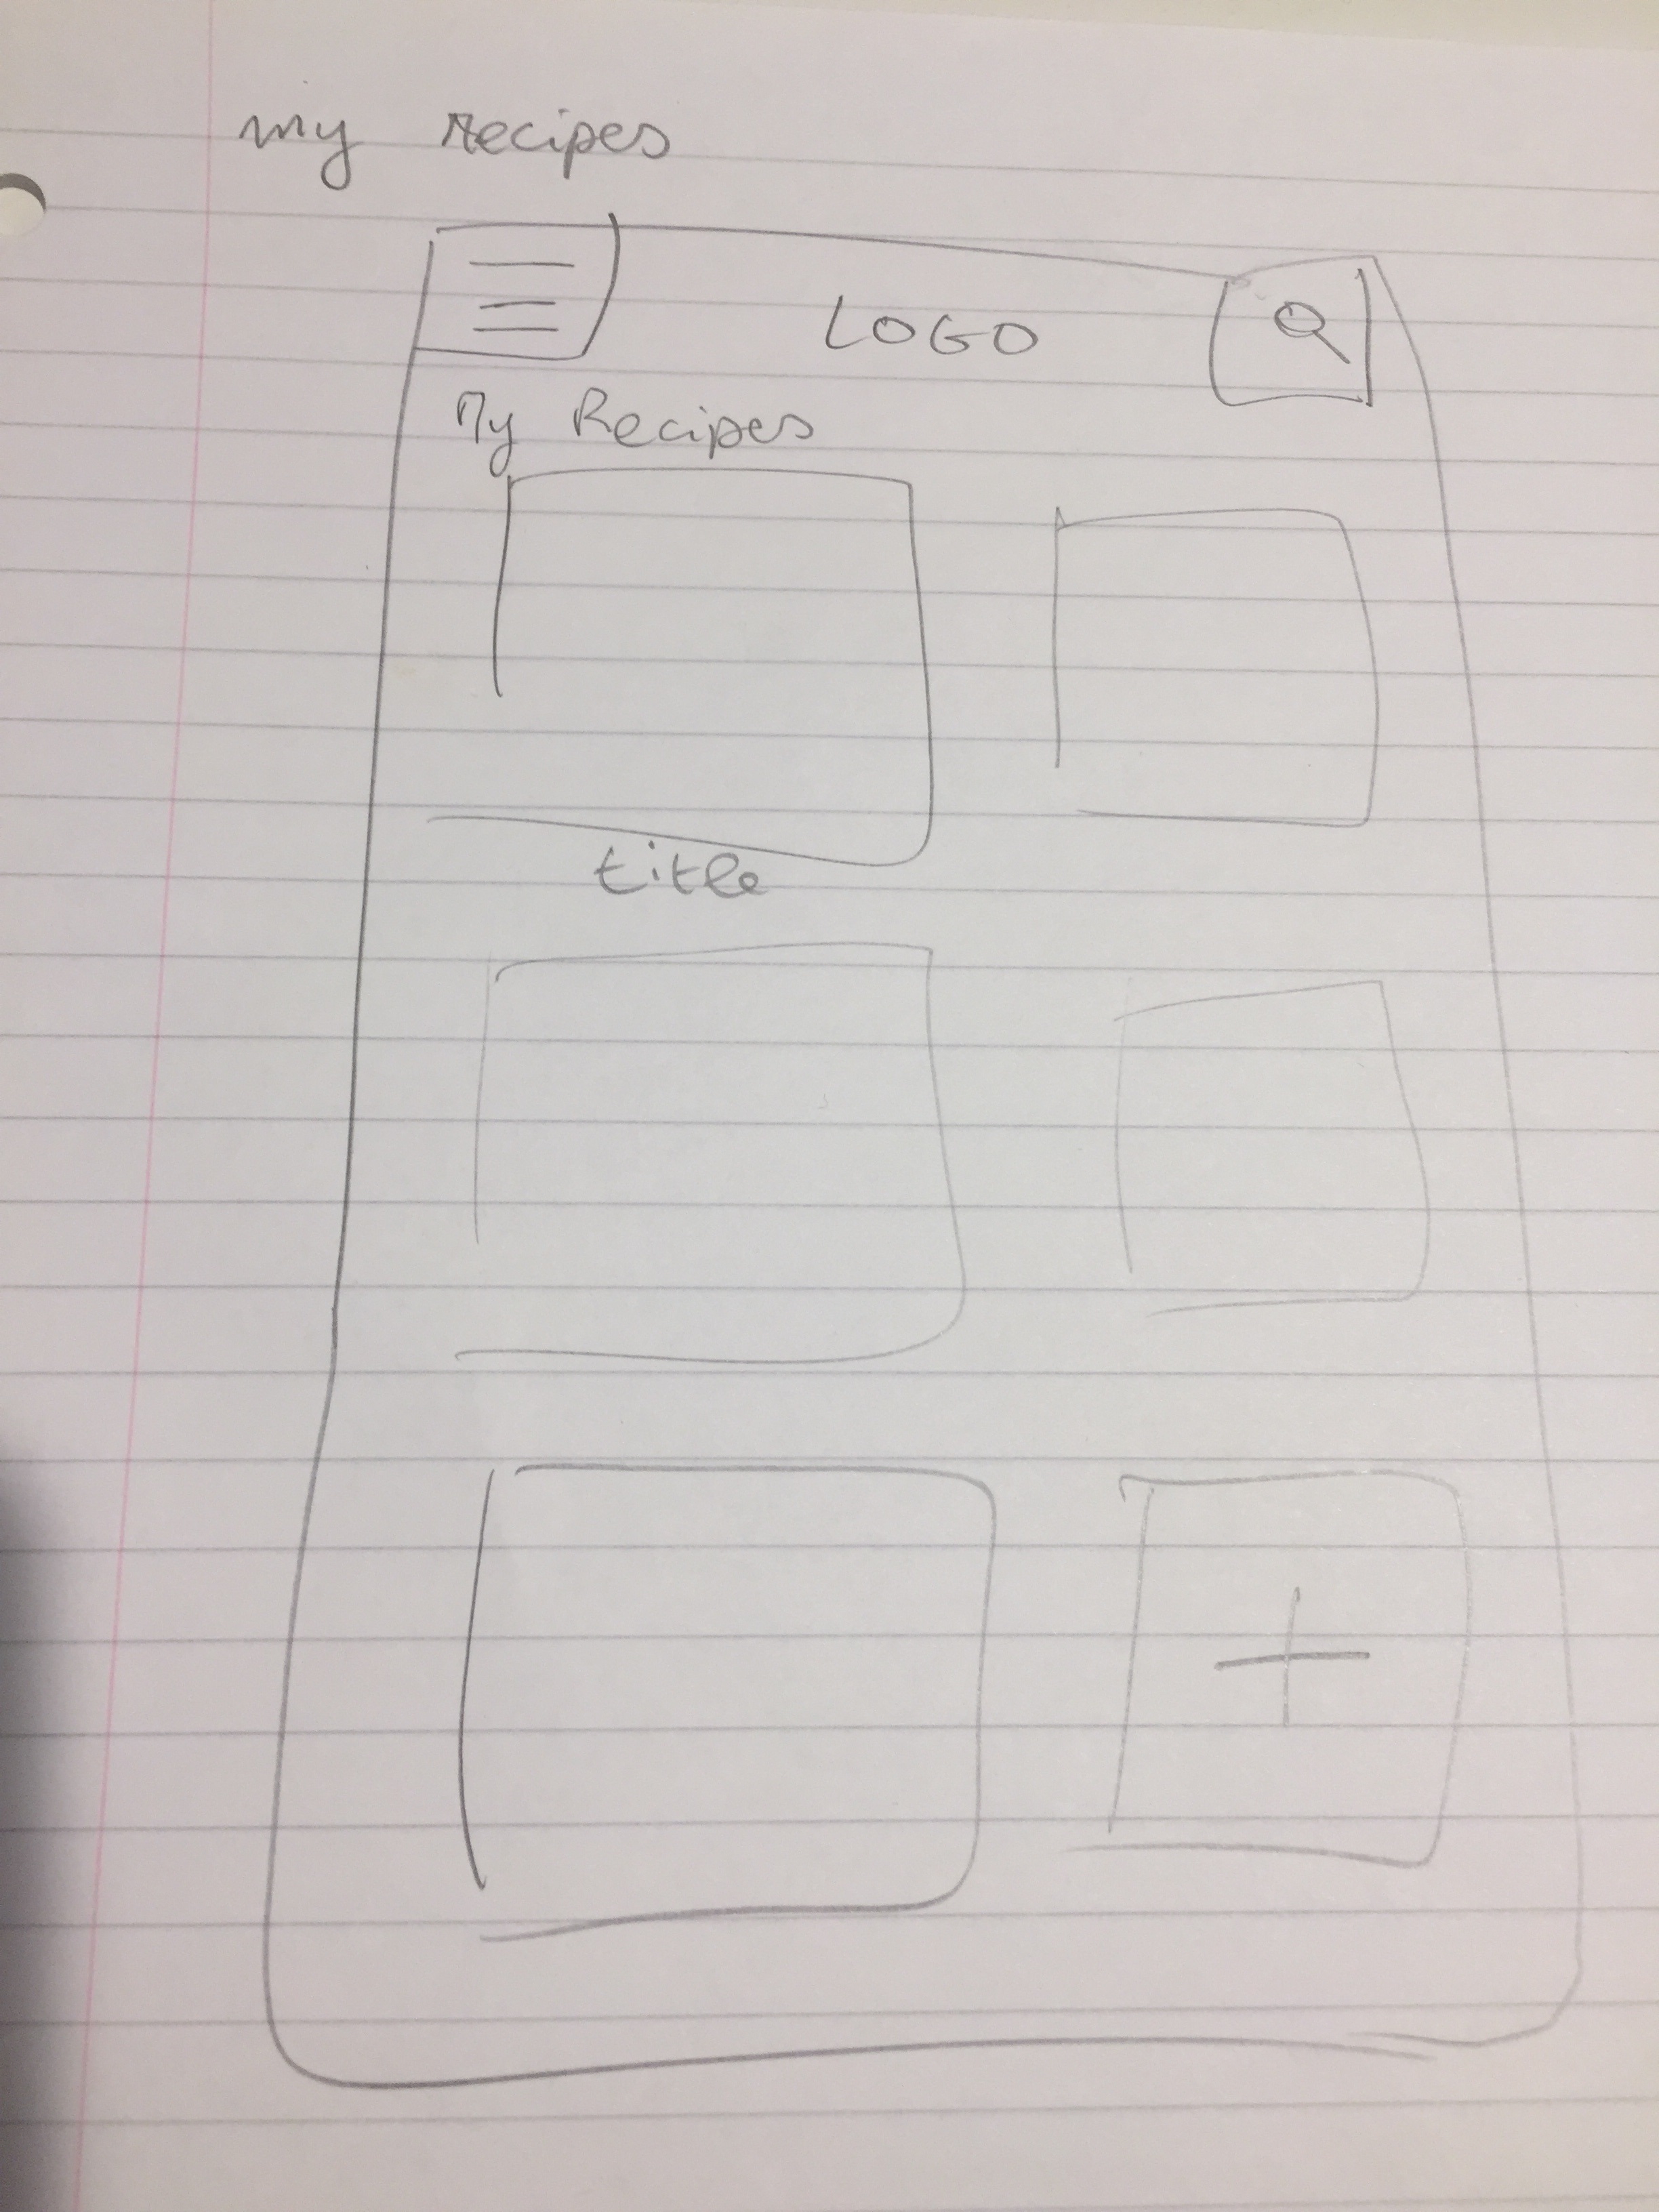 my recipes
LOGO
My Recipes
title